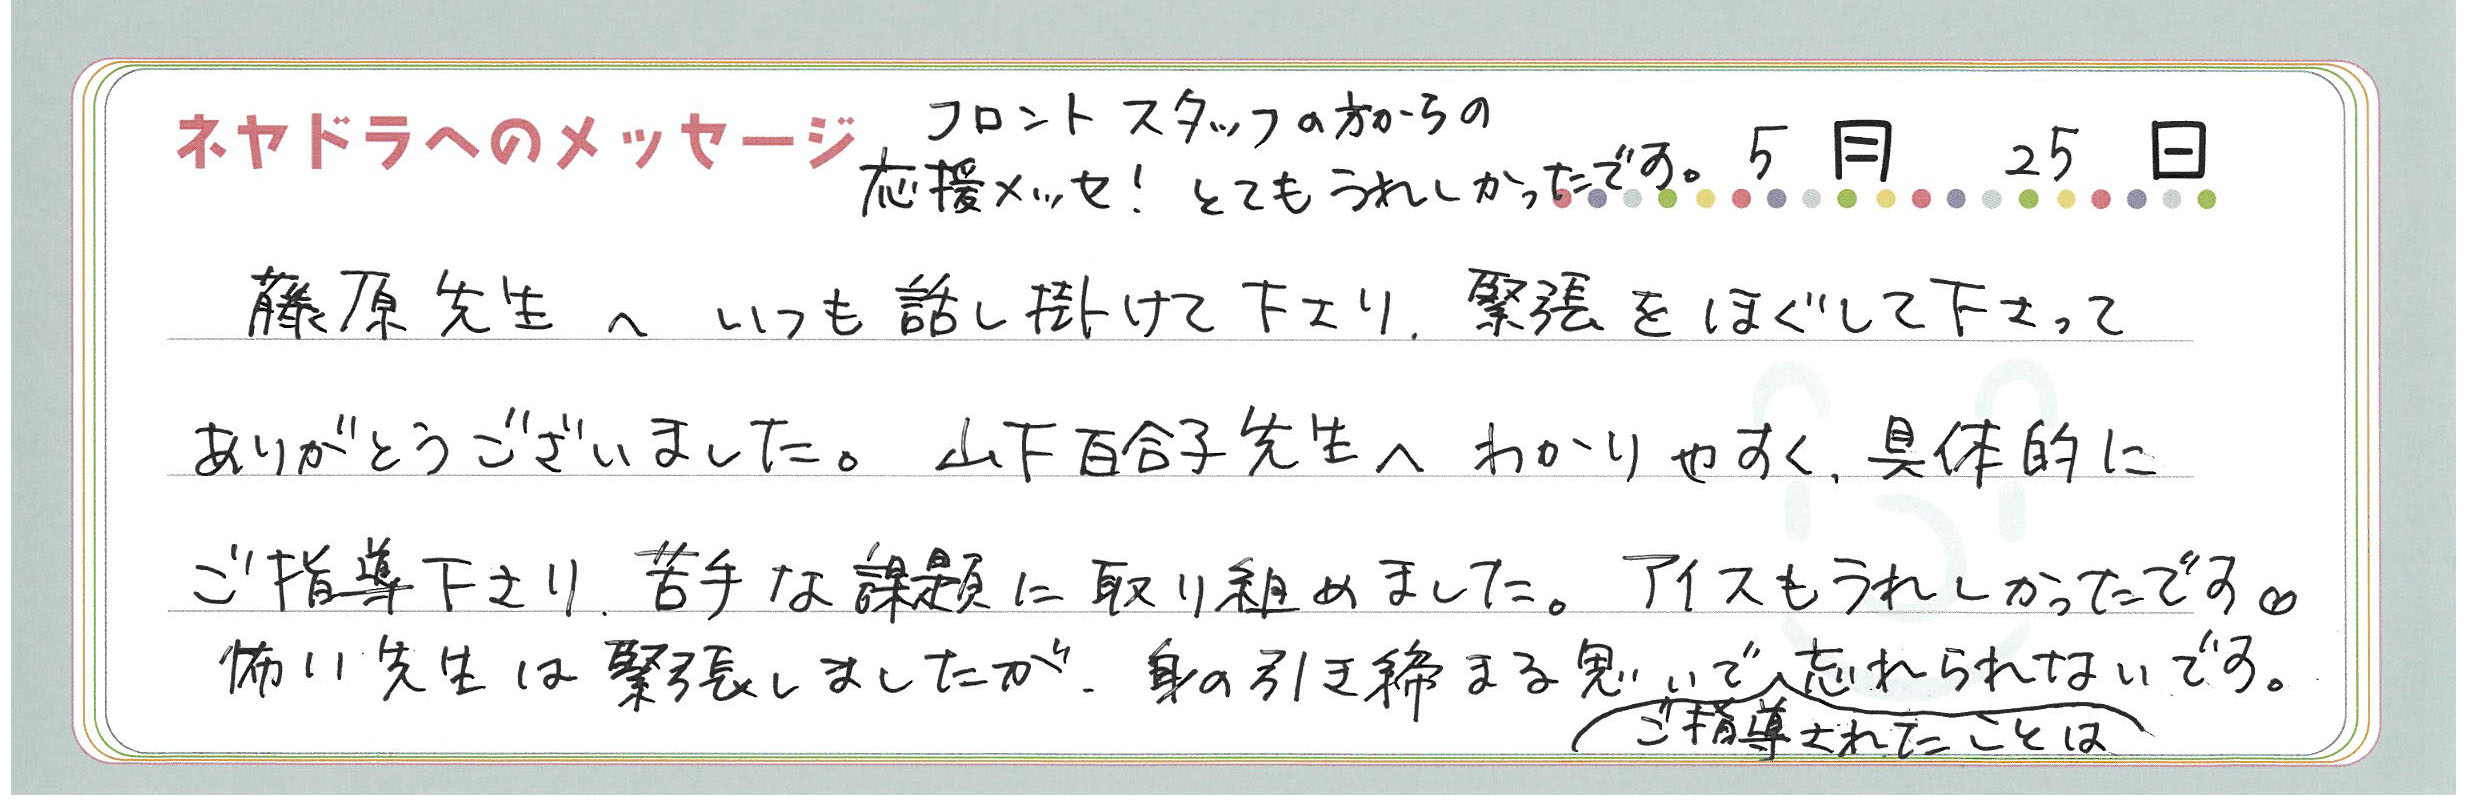 ネヤドラへのメッセージ
フロントスタッフの方からの
応援メッセ！とてもうれしかったです。
5月 25日
藤原先生へ いつも話し掛けて下さり、緊張をほぐして下さって
ありがとうございました。山下百合子先生へ わかりやすく、具体的に
ご指導下さり、苦手な課題に取り組めました。アイスもうれしかったです。
怖い先生は緊張しましたが、身の引き締まる思いで忘れられないです。
ご指導されたことは